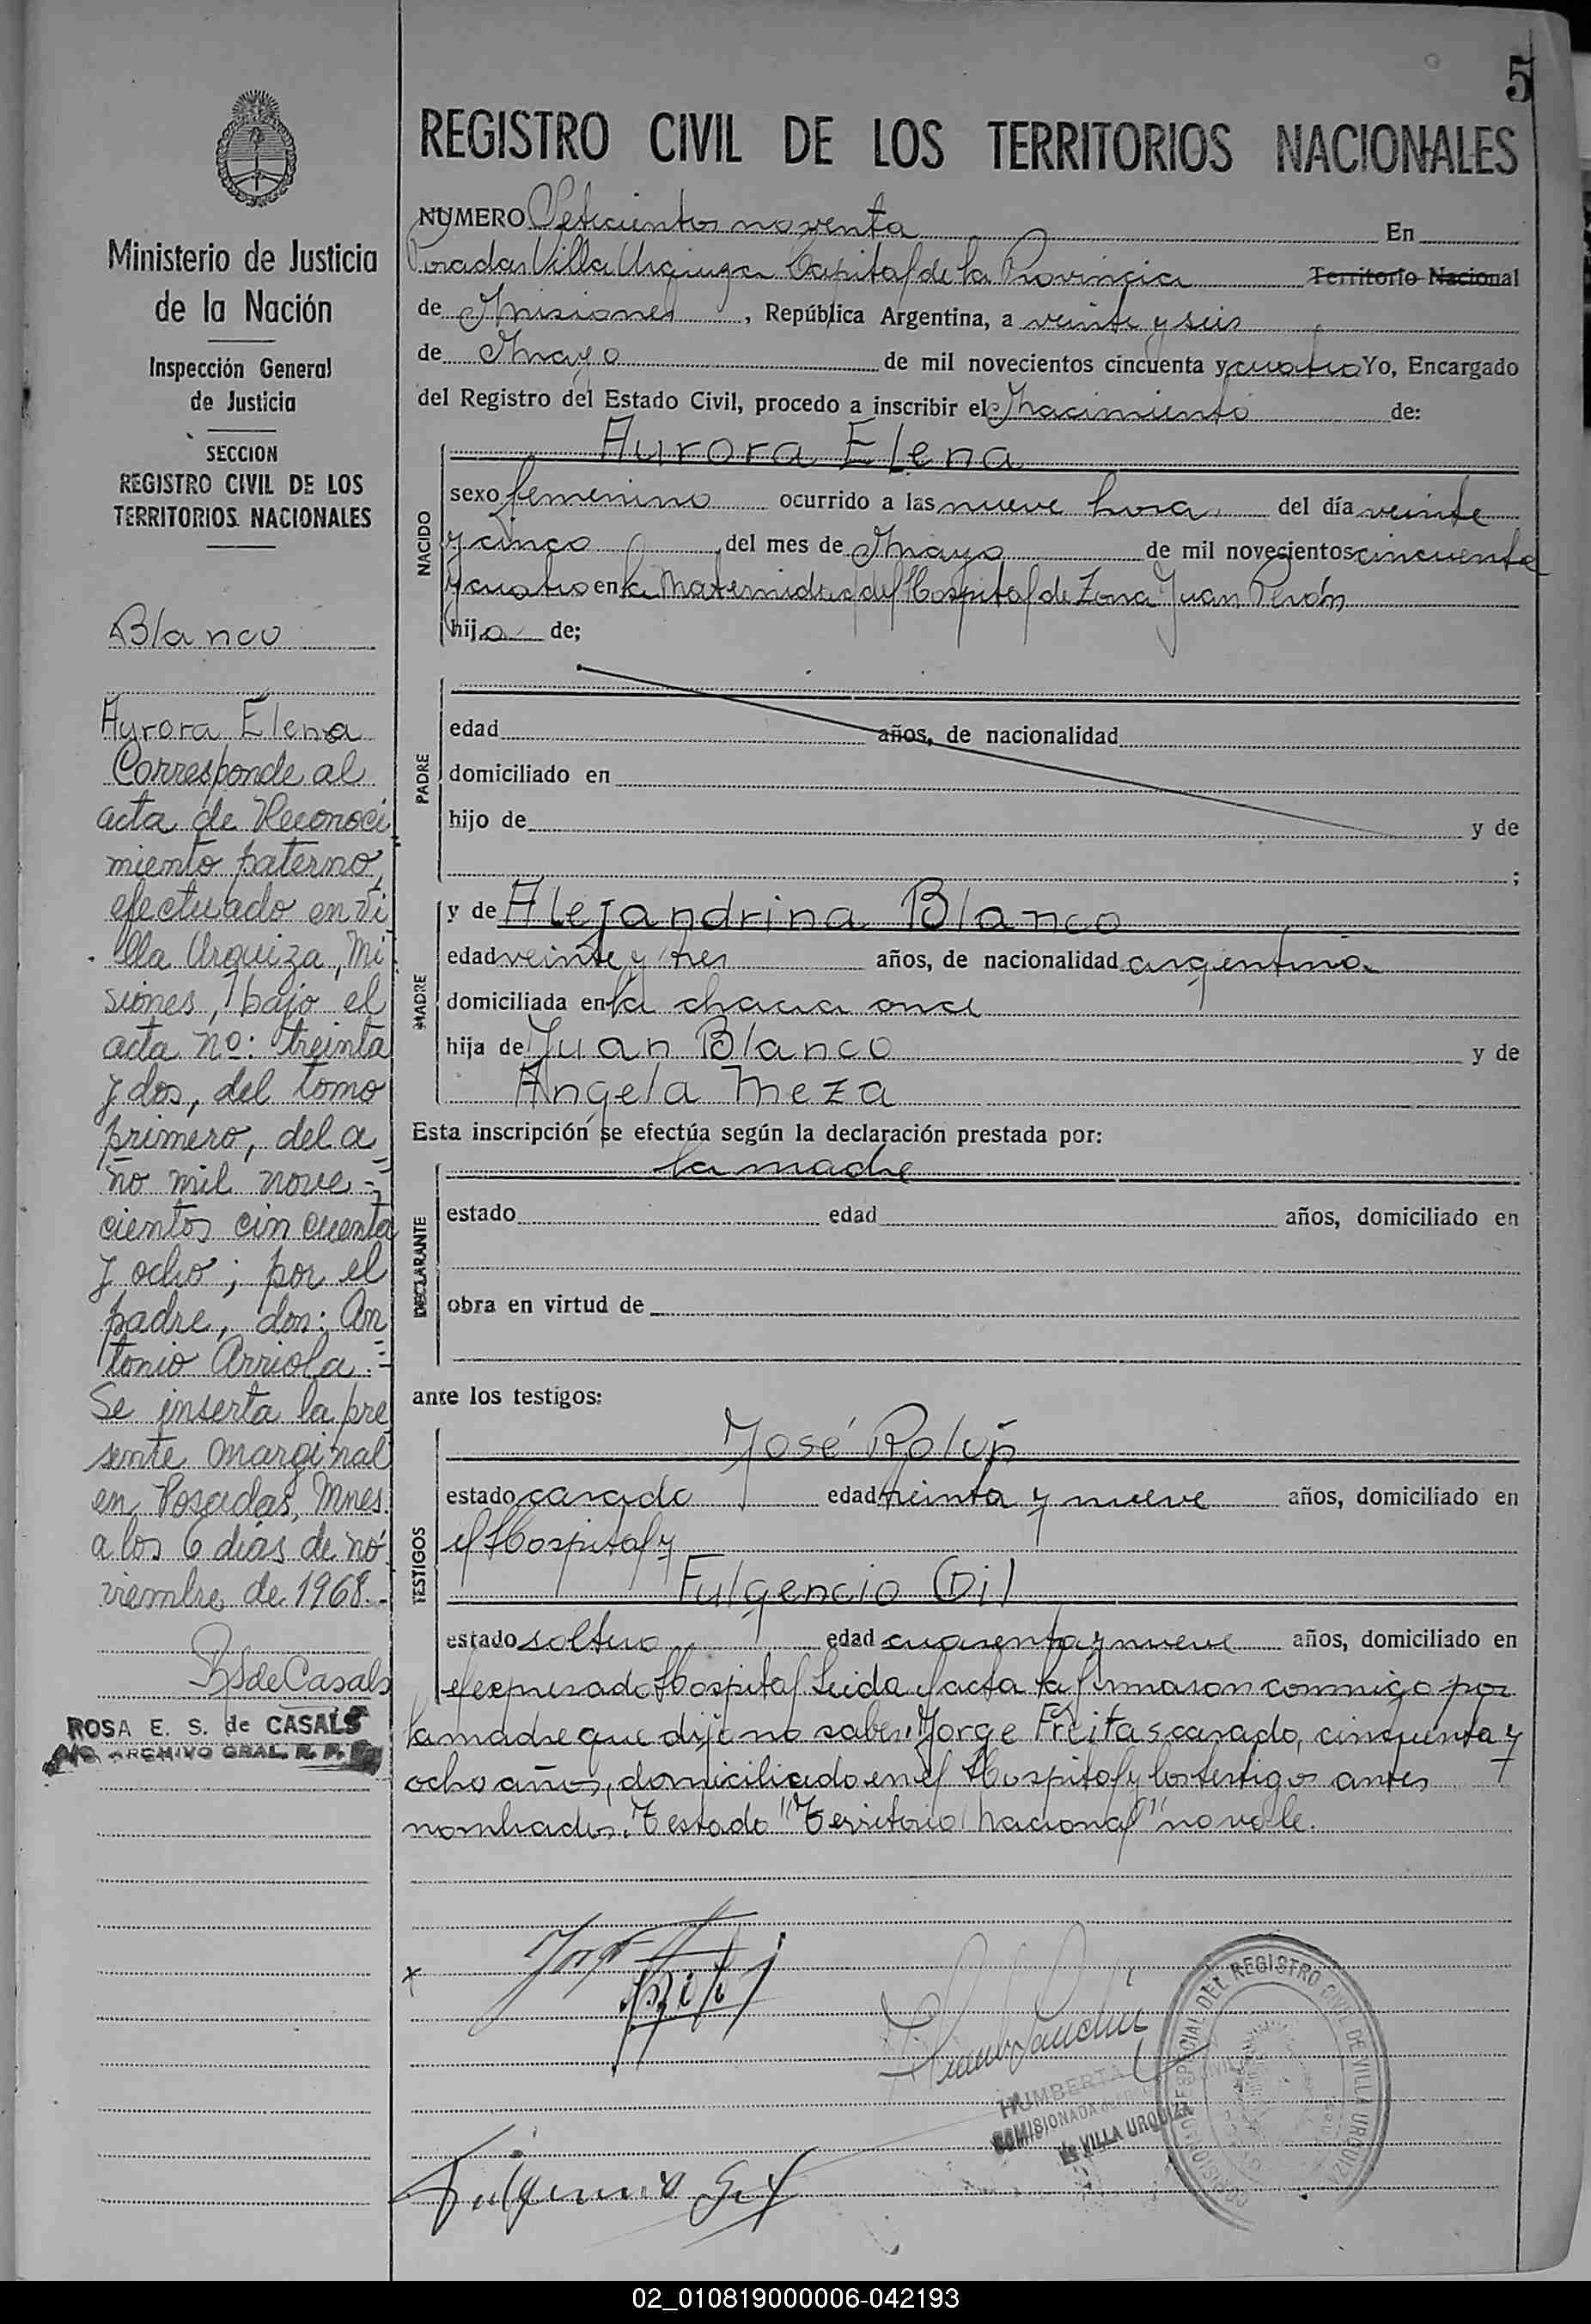 5
REGISTRO CIVIL DE LOS TERRITORIOS NACIONALES
Ministerio de Justicia
de la Nación
Inspección General
de Justicia
SECCION
REGISTRO CIVIL DE LOS
TERRITORIOS NACIONALES
Blanco
Aurora Elena
Corresponde al
acta de Reconoci
miento paterno,
efectuado en Vi
lla Urquiza, Mi
siones, bajo el
acta nº: treinta
y dos, del tomo
primero, del a
ño mil nove-
cientos cincuenta
y ocho; por el
padre, don: An
tonio Arriola.=
Se inserta la pre
sente marginal
en Posadas, Mnes.
a los 6 días de no
viembre de 1968.-
RSdeCasals
ROSA E. S. de CASALS
ARCHIVO GRAL. R. P.
NUMERO Setecientos noventa En
Posadas Villa Urquiza Capital de la Provincia Territorio Nacional
de Misiones, República Argentina, a veinte y seis
de Mayo de mil novecientos cincuenta y cuatro Yo, Encargado
del Registro del Estado Civil, procedo a inscribir el Nacimiento de:
NACIDO
Aurora Elena
sexo femenino ocurrido a las nueve hora. del día veinte
y cinco del mes de Mayo de mil novecientos cincuenta
y cuatro en la Maternidad del Hospital de Zona Juan Perón
hija de;
PADRE
edad años, de nacionalidad
domiciliado en
hijo de y de
;
MADRE
y de Alejandrina Blanco
edad veinte y tres años, de nacionalidad argentina
domiciliada en la chacra once
hija de Juan Blanco y de
Angela Meza
Esta inscripción se efectúa según la declaración prestada por:
DECLARANTE
la madre
estado edad años, domiciliado en
obra en virtud de
ante los testigos:
TESTIGOS
José
estado casado edad treinta y nueve años, domiciliado en
el Hospital y
Fulgencio Gil
estado soltero edad cuarenta y nueve años, domiciliado en
el expresado Hospital Leida el acta la firmaron conmigo por
la madre que dijo no saber: Jorge Freitas casado, cincuenta y
ocho años, domiciliado en el Hospital y los testigos antes
nombrados. Testado "Territorio Nacional" no vale.
Fulgencio Gil
HUMBERTA
COMISIONADA
de VILLA URQUIZA
ESPECIAL DEL REGISTRO CIVIL DE VILLA URQUIZA
02_010819000006-042193